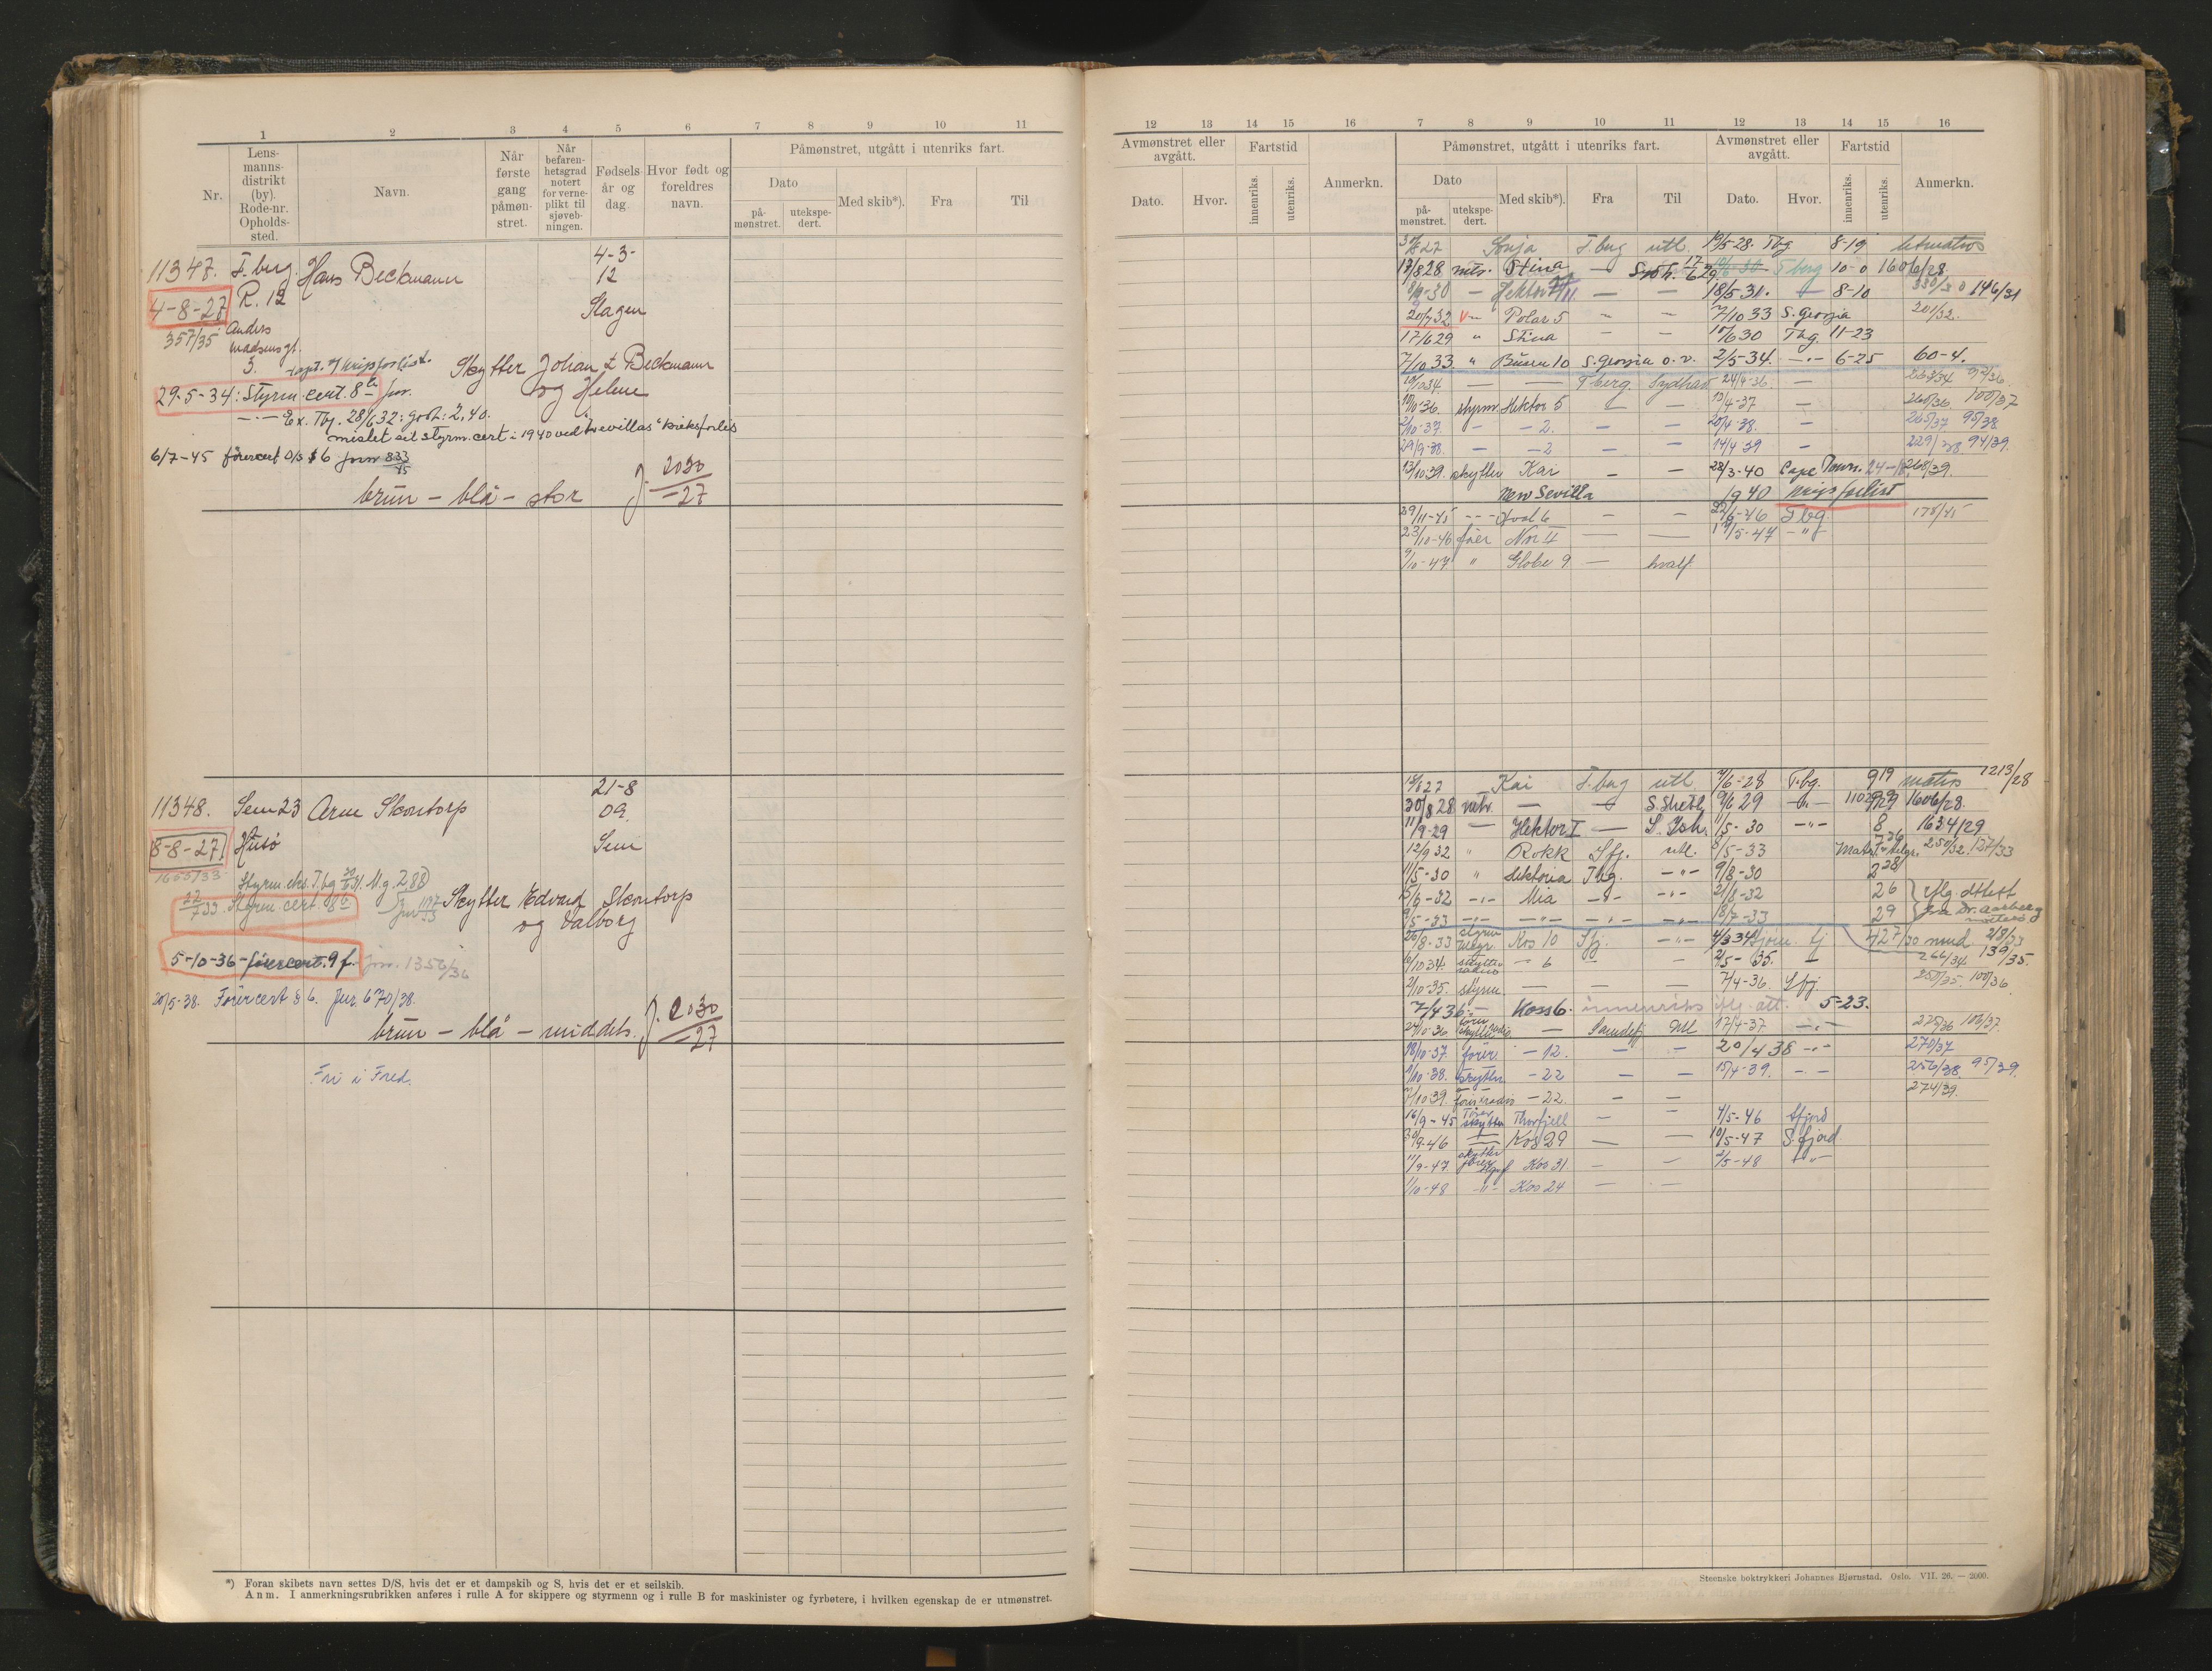 1 2 3 4 5 6 7 8 9 10 11
Nr.
Lens-
manns-
distrikt
(by).
Rode-nr.
Opholds-
sted.
Navn.
Når
første
gang
påmøn-
stret.
Når
befaren-
hetsgrad
notert
for verne-
plikt til
sjøveb-
ningen.
Fødsels
år og
dag.
Hvor født og
foreldres
navn.
Påmønstret, utgått i utenriks fart.
Dato
på-
mønstret.
utekspe-
dert.
Med skib*).
Fra
Til
11347. T.berg. Hans Beckmann 4-3-
12
4-8-27 R. 12 Slagen
357/35 Anders
Madsensgt.
3.
Skytter Johan L Beckmann
og Helene
29-5-34: Styrm. cert. 8
Ex. Tbg. 28/6 32: godt: 2,40.
mistet sit styrm. cert i 1940 ved
6/7-45 førercert D/S § 6 jurn 833/45
brun - blå - stor J. 2030/-27
11348. Sem 23 Arne Skontorp 21-8
09.
8-8-27 Husø Sem
1665/33
Styrm. eks. T.bg
Styrm cert. 8
Skytter Edvard Skontorp
og Valborg
5-10-36 - førercert. 9 f. jur. 1356/36
20/5-38. Førercert § 6. Jur 670/38.
brun - blå - middels. J. 2030/-27
Fri i Fred.
*) Foran skibets navn settes D/S, hvis det er et dampskib og S, hvis det er et seilskib.
Anm. I anmerkningsrubrikken anføres i rulle A for skippere og styrmenn og i rulle B for maskinister og fyrbøtere, i hvilken egenskap de er utmønstret.
12 13 14 15 16 7 8 9 10 11 12 13 14 15 16
Avmønstret eller
avgått.
Dato.
Hvor.
Fartstid
innenriks.
utenriks.
Anmerkn.
Påmønstret, utgått i utenriks fart.
Dato
på-
mønstret.
utekspe-
dert.
Med skib*).
Fra
Til
Avmønstret eller
avgått.
Dato.
Hvor.
Fartstid
innenriks.
utenriks.
Anmerkn.
Sonja T.berg utl. 19/5-28. Tbg 8-19
17/8 28 mtr. Stina — 10-0 1606/28.
8/9-30 — Hektor — — 18/5-31. — 8-10 146/31
20/7 32 Polar 5 - - 7/10 33 S. Georgia 201/32.
17/6 29 " Stina - - 10/6 30 Tbg. 11-23
7/10 33. " Busen 10 S. Georgia o.v. 2/5-34. -"- 6-25 60-4.
10/10 34. — — T.berg Sydhav 24/4-36 - 263/34 92/36
10/10-36. styrm. Hektor 5 — — 13/4-37 — 265/36. 100/37
2/10-37. - - 2. — — 20/4-38. — 265/37 95/38
29/9-38. — - 2 — — 14/4-39 — 229/38 94/39.
13/10 39. skytter Kai - - 28/3-40 Cape Town. 268/39.
New Sevilla 1940 krigsforlist
29/11-45 - - - Hval 6 — — 22/6-46 T.bg. 178/45
23/10-46 fører Nor 4 — — 19/5-47 -"-
9/10-47 " Globe 9 — hvalf.
Kai T.berg utl. 7/6-28 T.bg. 9 19 matros 1213/28
30/8 28 mtr. — S. Shetl. 9/6 29 -"- 1606/28.
11/9-29 — Hektor I — 11/5-30 -"- 8 1634/29
12/9 32 " Rokk Sfj. utl. 8/5-33 250/32. 127/33
11/5-30 " Hektoria Tbg. -"- 9/8-30 2 28
5/6-32 -"- Mia -"- -"- 21/8-32 26 iflg. attest
9/5-33 -"- -"- -"- -"- 18/7-33 29 fra Dr. Aarberg
26/8-33 styrm Kos 10 Sfj. -"- 218/33
6/10 34. skytter - 6 - - 2/5-35. - 266/34. 139/35.
2/10-35. styrm — — — 7/4-36. Sfj. 250/35. 100/36
7/4 36. - Kos 6. innenriks iflg. att. 5-23.
24/10-36 — Sandefj Utl 17/4-37 -"- 225/36 106/37.
18/10-37. fører - 12. — — 20/4 38 -"- 270/37
1/10-38. skytter - 22 — — 15/4-39. - - 256/38. 95/39.
7/10 39. - 22. — — 274/39.
16/9-45 fører skytter Thorfjell — — 4/5-46 Sfjord
30/9-46 — Kos 29 — — 10/5-47 S.fjord.
11/9-47. skytter fører Kos 31. — — 2/5-48 -"-
1/10-48 -"- Kos 24 — —
Steenske boktrykkeri Johannes Bjørnstad, Oslo. VII. 26. — 2000.